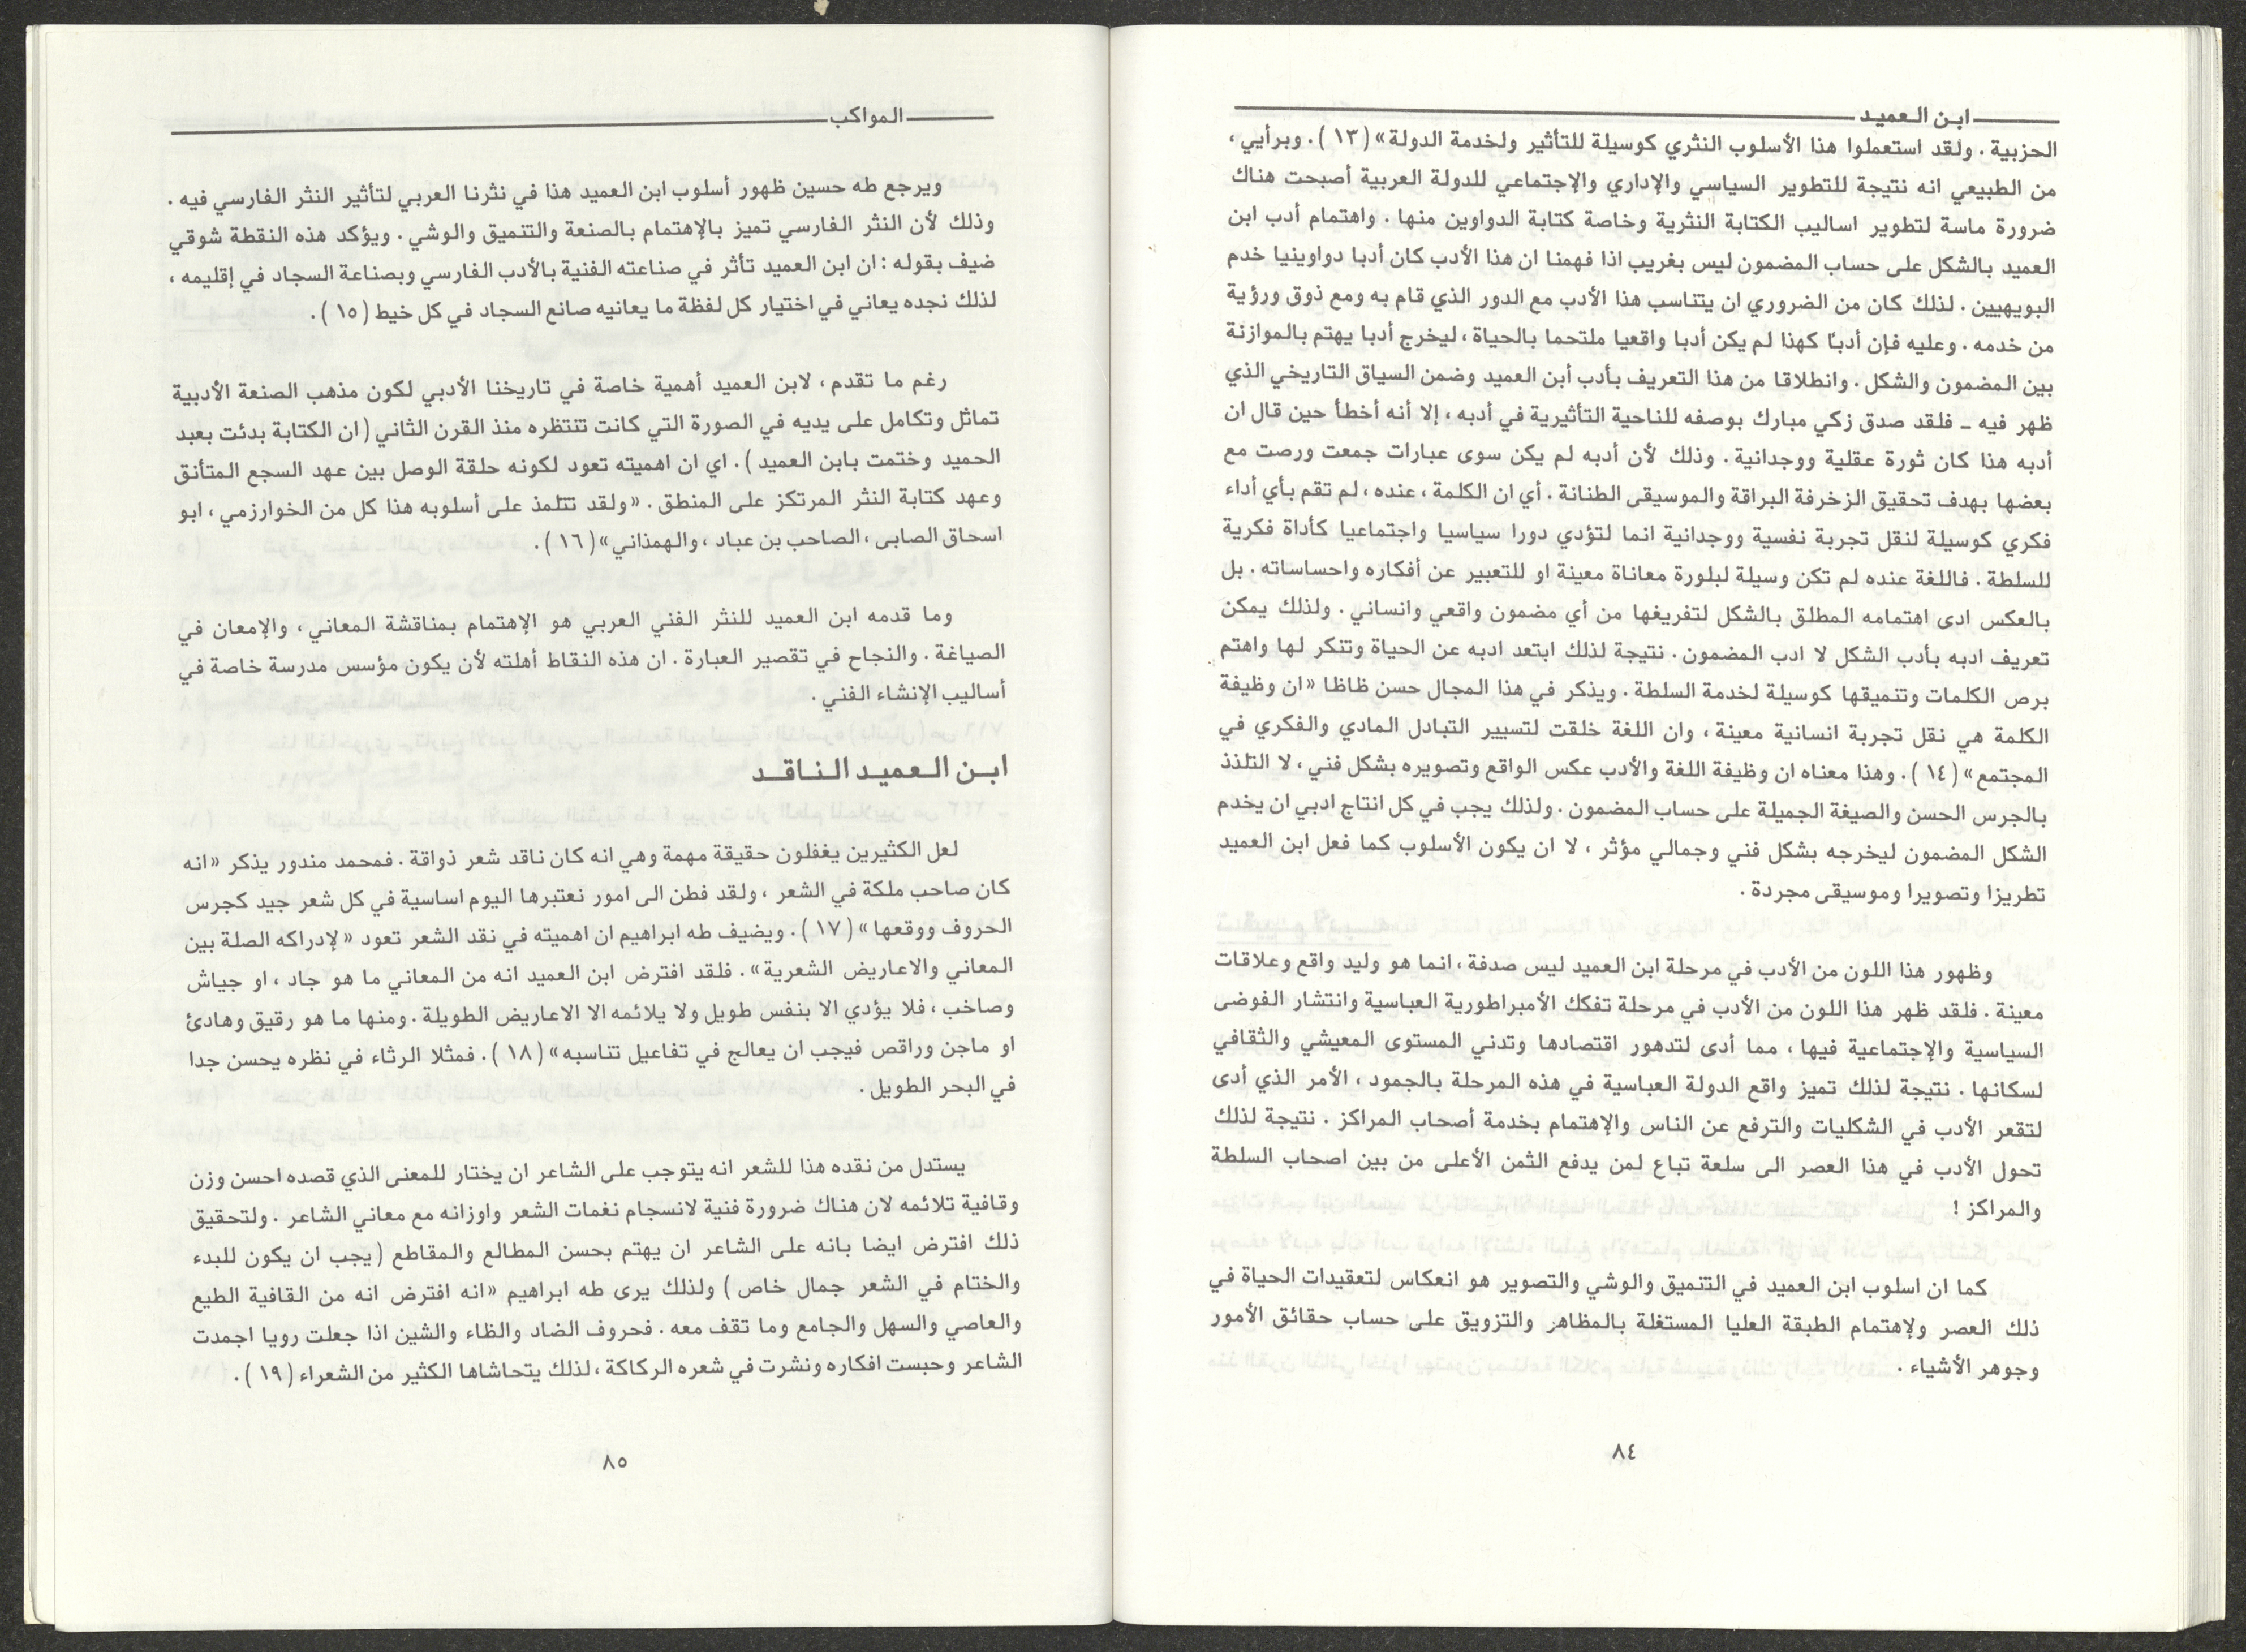 ابن العميد
الحزبية . ولقد استعملوا هذا الأسلوب النثري كوسيلة للتأثير ولخدمة الدولة» ( ١٣ ) . وبرأيي ،
من الطبيعي انه نتيجة للتطوير السياسي والإداري والإجتماعي للدولة العربية أصبحت هناك
ضرورة ماسة لتطوير اساليب الكتابة النثرية وخاصة كتابة الدواوين منها . واهتمام أدب ابن
العميد بالشكل على حساب المضمون ليس بغريب اذا فهمنا ان هذا الأدب كان أدبا دواوينيا خدم
البويهيين . لذلك كان من الضروري ان يتناسب هذا الأدب مع الدور الذي قام به ومع ذوق ورؤية
من خدمه . وعليه فإن أدبًا كهذا لم يكن أدبا واقعيا ملتحما بالحياة ، ليخرج أدبا يهتم بالموازنة
بين المضمون والشكل . وانطلاقا من هذا التعريف بأدب أبن العميد وضمن السياق التاريخي الذي
ظهر فيه ــ فلقد صدق زكي مبارك بوصفه للناحية التأثيرية في أدبه ، إلا أنه أخطأ حين قال ان
أدبه هذا كان ثورة عقلية ووجدانية . وذلك لأن أدبه لم يكن سوى عبارات جمعت ورصت مع
بعضها بهدف تحقيق الزخرفة البراقة والموسيقى الطنانة . أي ان الكلمة ، عنده ، لم تقم بأي أداء
فكري كوسيلة لنقل تجربة نفسية ووجدانية انما لتؤدي دورا سياسيا واجتماعيا كأداة فكرية
للسلطة . فاللغة عنده لم تكن وسيلة لبلورة معاناة معينة او للتعبير عن أفكاره واحساساته . بل
بالعكس ادى اهتمامه المطلق بالشكل لتفريغها من أي مضمون واقعي وانساني . ولذلك يمكن
تعريف ادبه بأدب الشكل لا ادب المضمون . نتيجة لذلك ابتعد ادبه عن الحياة وتنكر لها واهتم
برص الكلمات وتنميقها كوسيلة لخدمة السلطة . ويذكر في هذا المجال حسن ظاظا «ان وظيفة
الكلمة هي نقل تجربة انسانية معينة ، وان اللغة خلقت لتسيير التبادل المادي والفكري في
المجتمع» ( ١٤ ) . وهذا معناه ان وظيفة اللغة والأدب عكس الواقع وتصويره بشكل فني ، لا التلذذ
بالجرس الحسن والصيغة الجميلة على حساب المضمون . ولذلك يجب في كل انتاج ادبي ان يخدم
الشكل المضمون ليخرجه بشكل فني وجمالي مؤثر ، لا ان يكون الأسلوب كما فعل ابن العميد
تطريزا وتصويرا وموسيقى مجردة .
وظهور هذا اللون من الأدب في مرحلة ابن العميد ليس صدفة ، انما هو وليد واقع وعلاقات
معينة . فلقد ظهر هذا اللون من الأدب في مرحلة تفكك الأمبراطورية العباسية وانتشار الفوضى
السياسية والإجتماعية فيها ، مما أدى لتدهور اقتصادها وتدني المستوى المعيشي والثقافي
لسكانها . نتيجة لذلك تميز واقع الدولة العباسية في هذه المرحلة بالجمود ، الأمر الذي أدى
لتقعر الأدب في الشكليات والترفع عن الناس والإهتمام بخدمة أصحاب المراكز . نتيجة لذلك
تحول الأدب في هذا العصر الى سلعة تباع لمن يدفع الثمن الأعلى من بين اصحاب السلطة
والمراكز !
كما ان اسلوب ابن العميد في التنميق والوشي والتصوير هو انعكاس لتعقيدات الحياة في
ذلك العصر ولإهتمام الطبقة العليا المستغلة بالمظاهر والتزويق على حساب حقائق الأمور
وجوهر الأشياء .
٨٤
المواكب
ويرجع طه حسين ظهور أسلوب ابن العميد هذا في نثرنا العربي لتأثير النثر الفارسي فيه .
وذلك لأن النثر الفارسي تميز بالإهتمام بالصنعة والتنميق والوشي . ويؤكد هذه النقطة شوقي
ضيف بقوله : ان ابن العميد تأثر في صناعته الفنية بالأدب الفارسي وبصناعة السجاد في إقليمه ،
لذلك نجده يعاني في اختيار كل لفظة ما يعانيه صانع السجاد في كل خيط ( ١٥ ) .
رغم ما تقدم ، لابن العميد أهمية خاصة في تاريخنا الأدبي لكون مذهب الصنعة الأدبية
تماثل وتكامل على يديه في الصورة التي كانت تنتظره منذ القرن الثاني ( ان الكتابة بدئت بعبد
الحميد وختمت بابن العميد ) . اي ان اهميته تعود لكونه حلقة الوصل بين عهد السجع المتأنق
وعهد كتابة النثر المرتكز على المنطق . «ولقد تتلمذ على أسلوبه هذا كل من الخوارزمي ، ابو
اسحاق الصابى ، الصاحب بن عباد ، والهمذاني» ( ١٦ ) .
وما قدمه ابن العميد للنثر الفني العربي هو الإهتمام بمناقشة المعاني ، والإمعان في
الصياغة . والنجاح في تقصير العبارة . ان هذه النقاط أهلته لأن يكون مؤسس مدرسة خاصة في
أساليب الإنشاء الفني .
ابن العميد الناقد
لعل الكثيرين يغفلون حقيقة مهمة وهي انه كان ناقد شعر ذواقة . فمحمد مندور يذكر «انه
كان صاحب ملكة في الشعر ، ولقد فطن الى امور نعتبرها اليوم اساسية في كل شعر جيد كجرس
الحروف ووقعها» ( ١٧ ) . ويضيف طه ابراهيم ان اهميته في نقد الشعر تعود «لإدراكه الصلة بين
المعاني والاعاريض الشعرية» . فلقد افترض ابن العميد انه من المعاني ما هو جاد ، او جياش
وصاخب ، فلا يؤدي الا بنفس طويل ولا يلائمه الا الاعاريض الطويلة . ومنها ما هو رقيق وهادئ
او ماجن وراقص فيجب ان يعالج في تفاعيل تناسبه» ( ١٨ ) . فمثلا الرثاء في نظره يحسن جدا
في البحر الطويل .
يستدل من نقده هذا للشعر انه يتوجب على الشاعر ان يختار للمعنى الذي قصده احسن وزن
وقافية تلائمه لان هناك ضرورة فنية لانسجام نغمات الشعر واوزانه مع معاني الشاعر . ولتحقيق
ذلك افترض ايضا بانه على الشاعر ان يهتم بحسن المطالع والمقاطع ( يجب ان يكون للبدء
والختام في الشعر جمال خاص ) ولذلك يرى طه ابراهيم «انه افترض انه من القافية الطيع
والعاصي والسهل والجامع وما تقف معه . فحروف الضاد والظاء والشين اذا جعلت رويا اجمدت
الشاعر وحبست افكاره ونشرت في شعره الركاكة ، لذلك يتحاشاها الكثير من الشعراء ( ١٩ ) .
٨٥